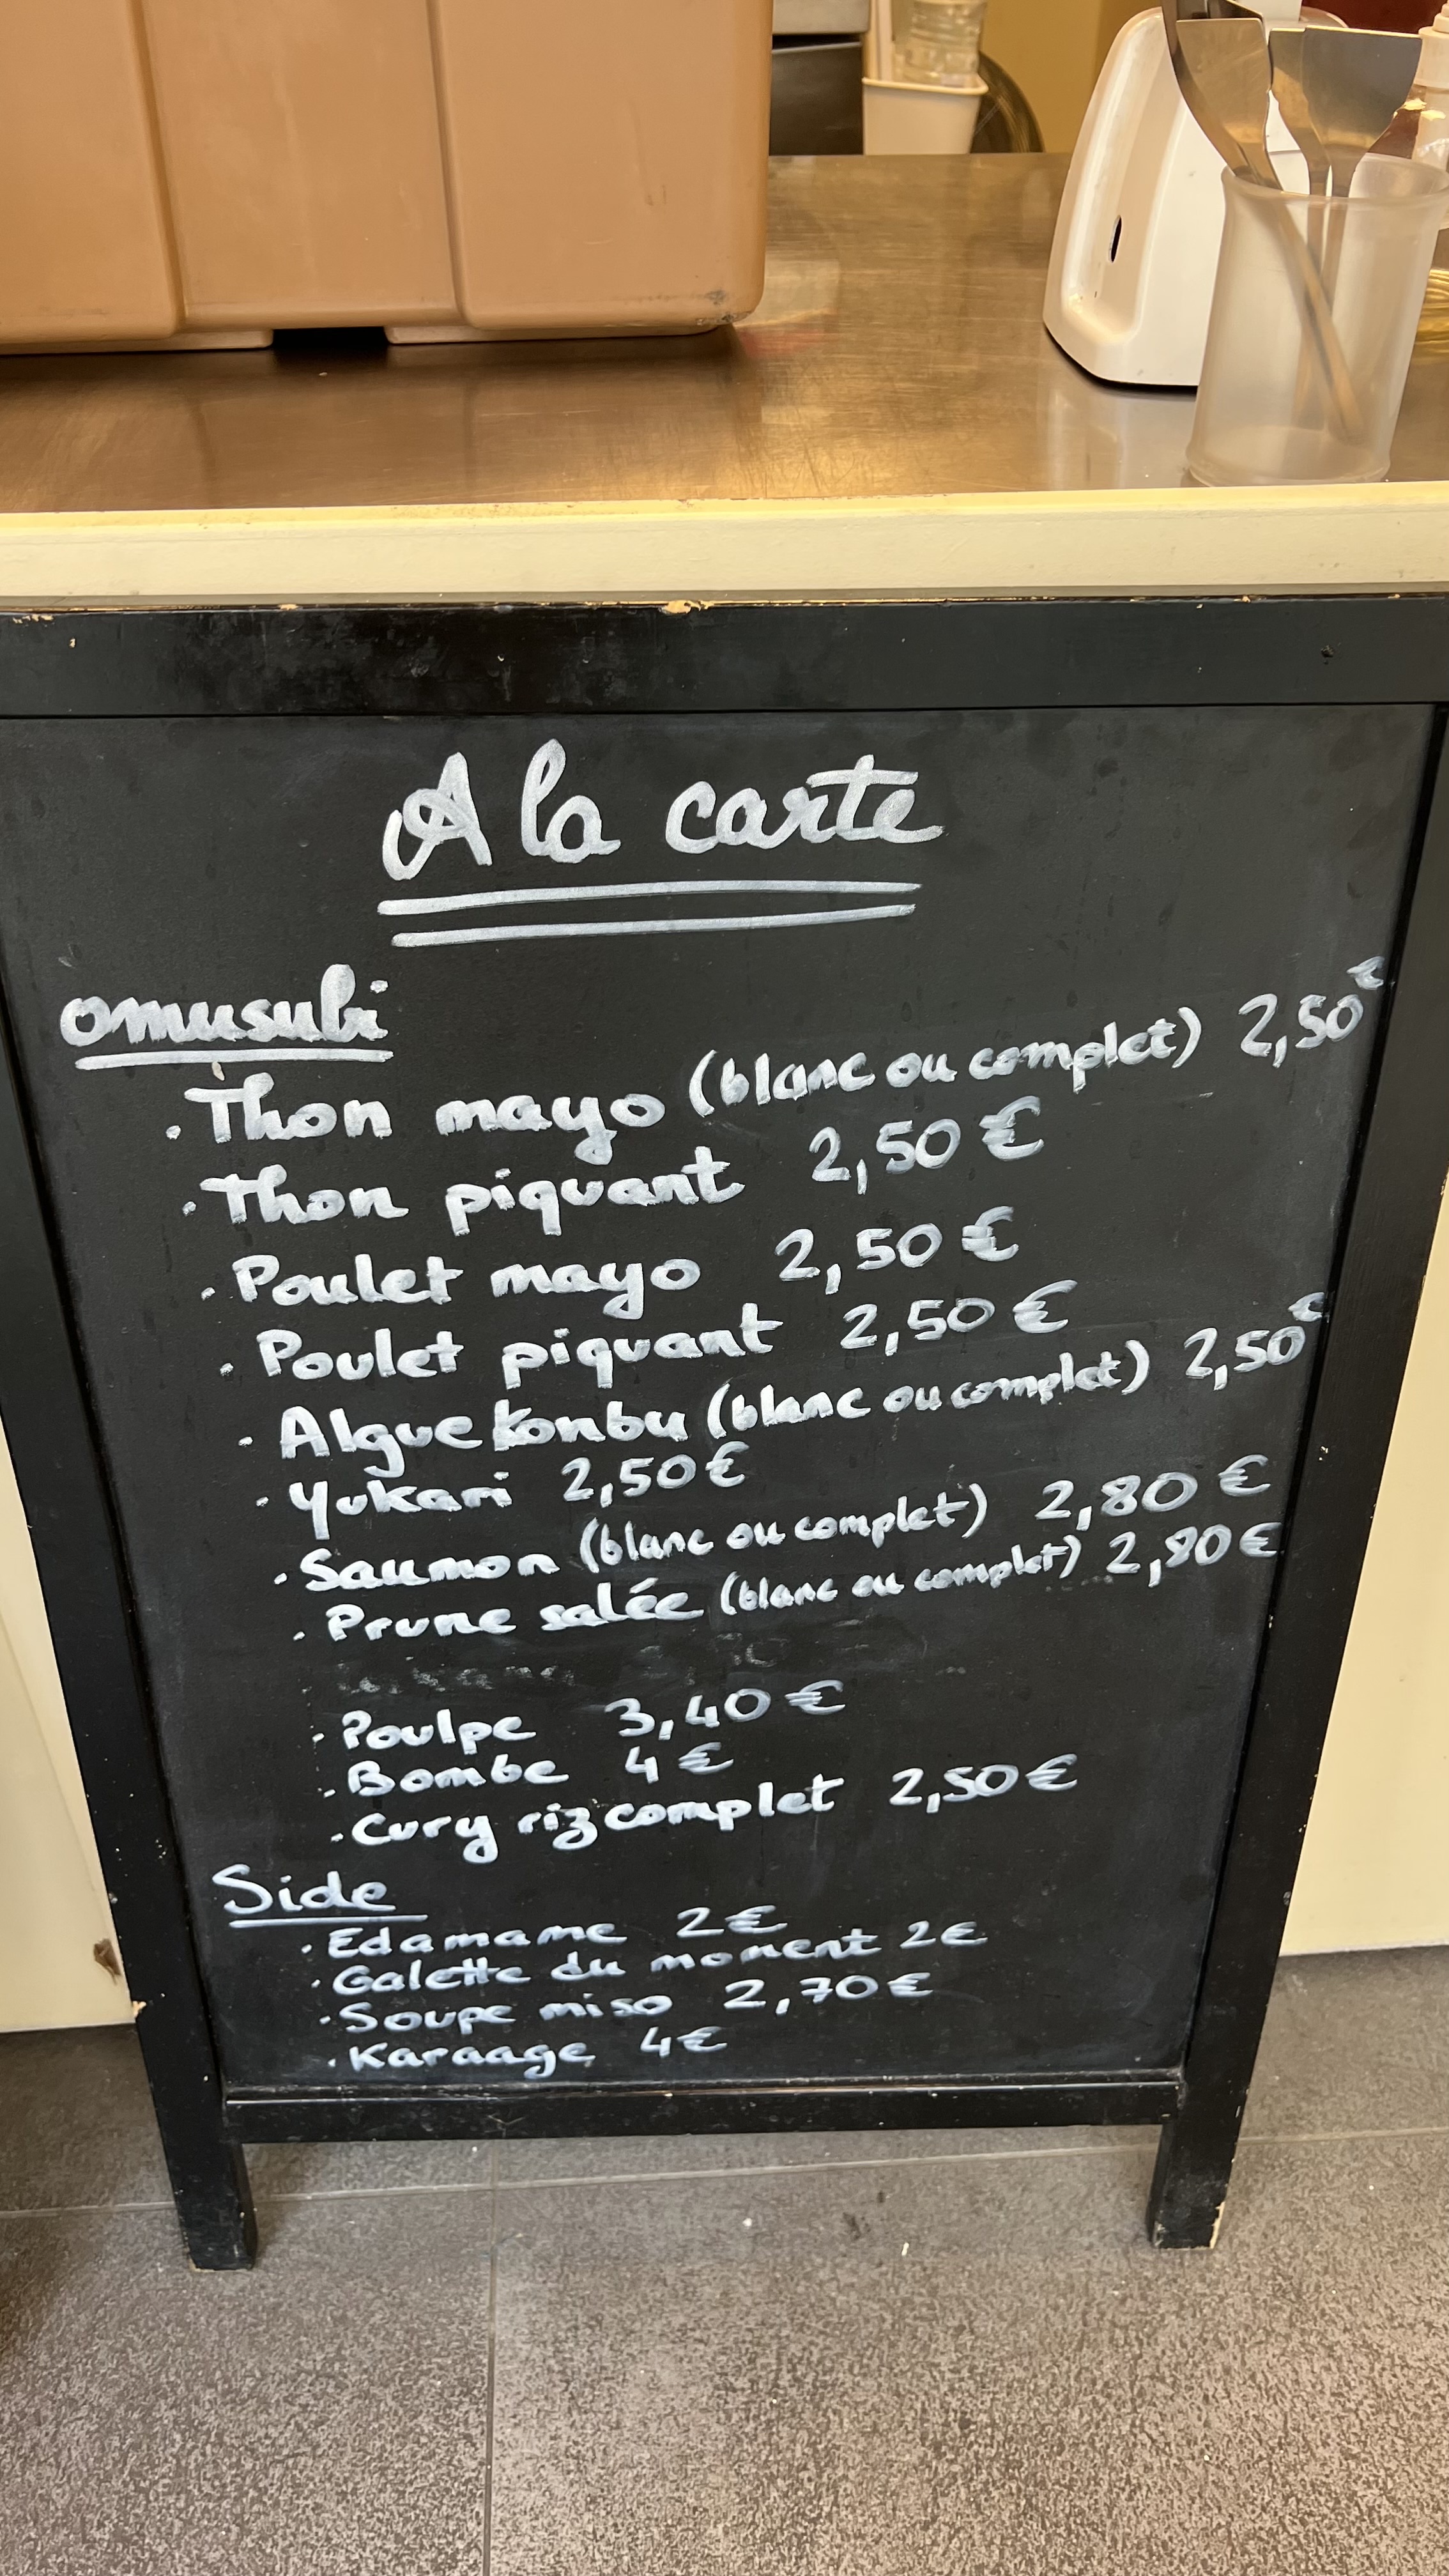 A la carte
omusubi
. Thon mayo (blanc ou complet) 2,50€
. Thon piquant 2,50€
. Poulet mayo 2,50€
. Poulet piquant 2,50€
. Algue konbu (blanc ou complet) 2,50€
. Yukari 2,50€
. Saumon (blanc ou complet) 2,80€
. Prune salée (blanc ou complet) 2,80€
. Poulpe 3,40€
. Bombe 4€
. Cury riz complet 2,50€
Side
. Edamame 2€
. Galette du moment 2€
. Soupe miso 2,70€
. Karaage 4€